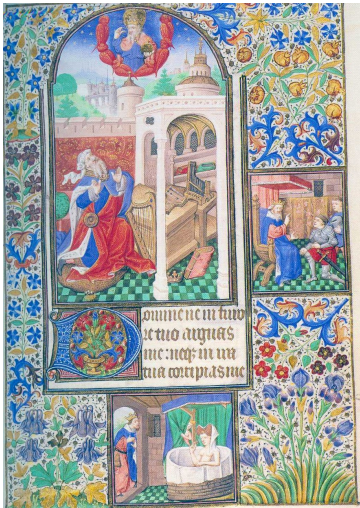 Domine ne in furo
re tuo arguas
me neqꝫ in ira
tua corripias me